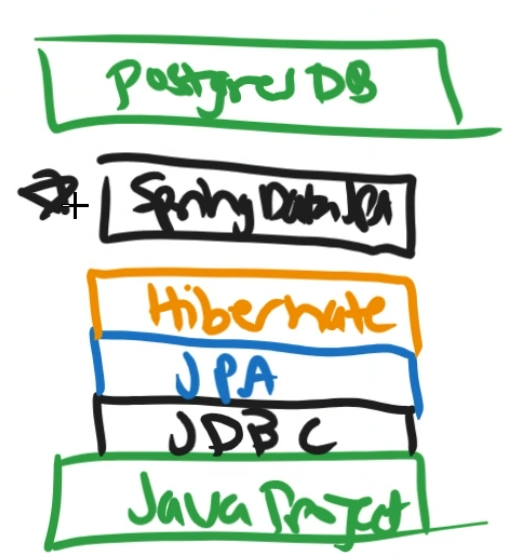 Postgres DB
Spring Data JPA
Hibernate
JPA
JDBC
Java Project